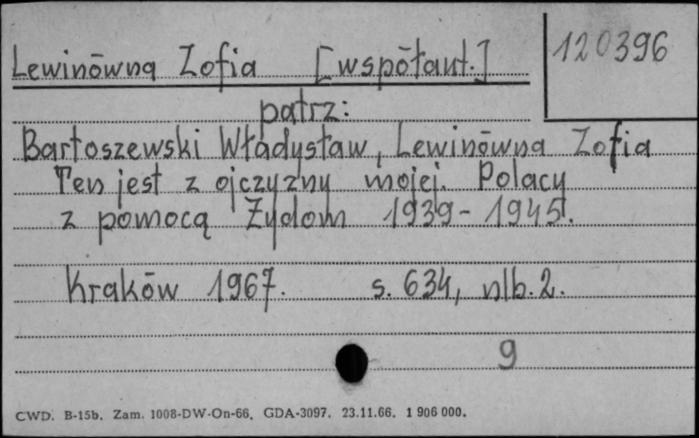 Lewinówna Zofia [współaut.]
120396
patrz:
Bartoszewski Władysław, Lewinówna Zofia
Ten jest z ojczyzny mojej. Polacy
z pomocą Żydom 1939-1945.
Kraków 1967. s. 634, nlb. 2.
9
CWD. B-15b. Zam. 1008-DW-On-66. GDA-3097. 23.11.66. 1 906 000.